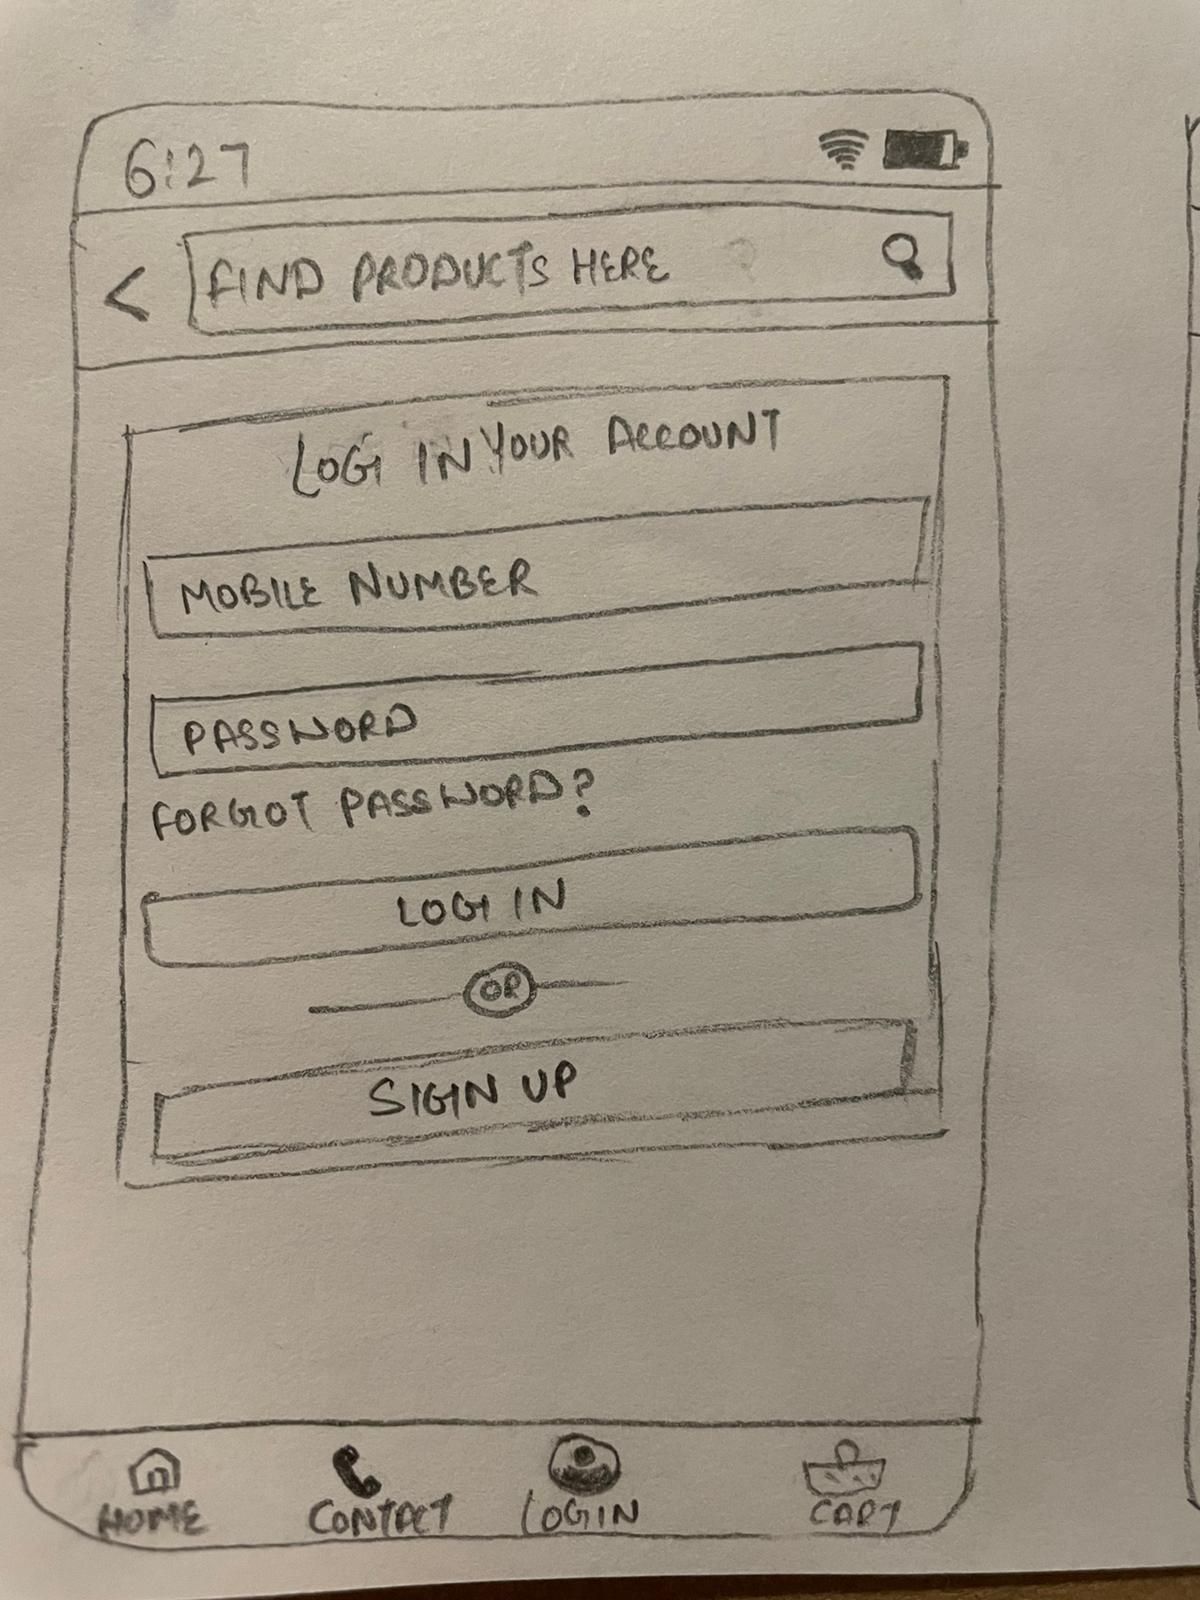 6:27
FIND PRODUCTS HERE
LOG IN YOUR ACCOUNT
MOBILE NUMBER
PASSWORD
FORGOT PASSWORD?
LOG IN
OR
SIGN UP
HOME CONTACT LOGIN CART